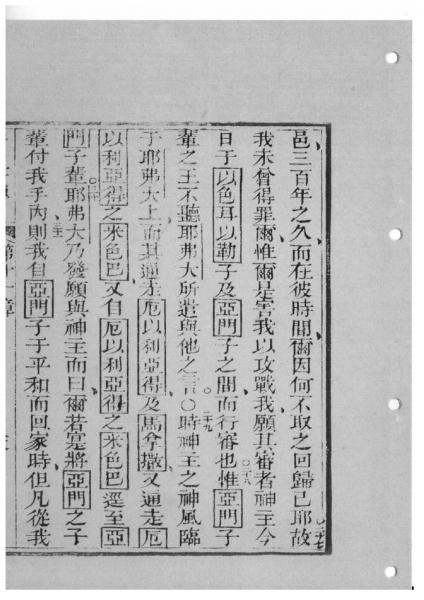 邑三百年之久而在彼時間爾因何不取之回歸已耶故 二十七
我未曾得罪爾惟爾是害我以攻戰我願其審者神主今
日于以色耳以勒子及亞門子之間而行審也 二十八 惟亞門子
輩之王不聽耶弗大所遣與他之言○ 二十九 時神主之神風臨
于耶弗大上而其通走厄以利亞得及馬拿撒又通走厄
以利亞得之米色巴又自厄以利亞得之米色巴逕至亞
門子輩 三十 耶弗大乃發愿與神主而曰爾若寔將亞門之子
輩付我手內 三十一 則我自亞門子于平和而回家時但凡從我
第十一章